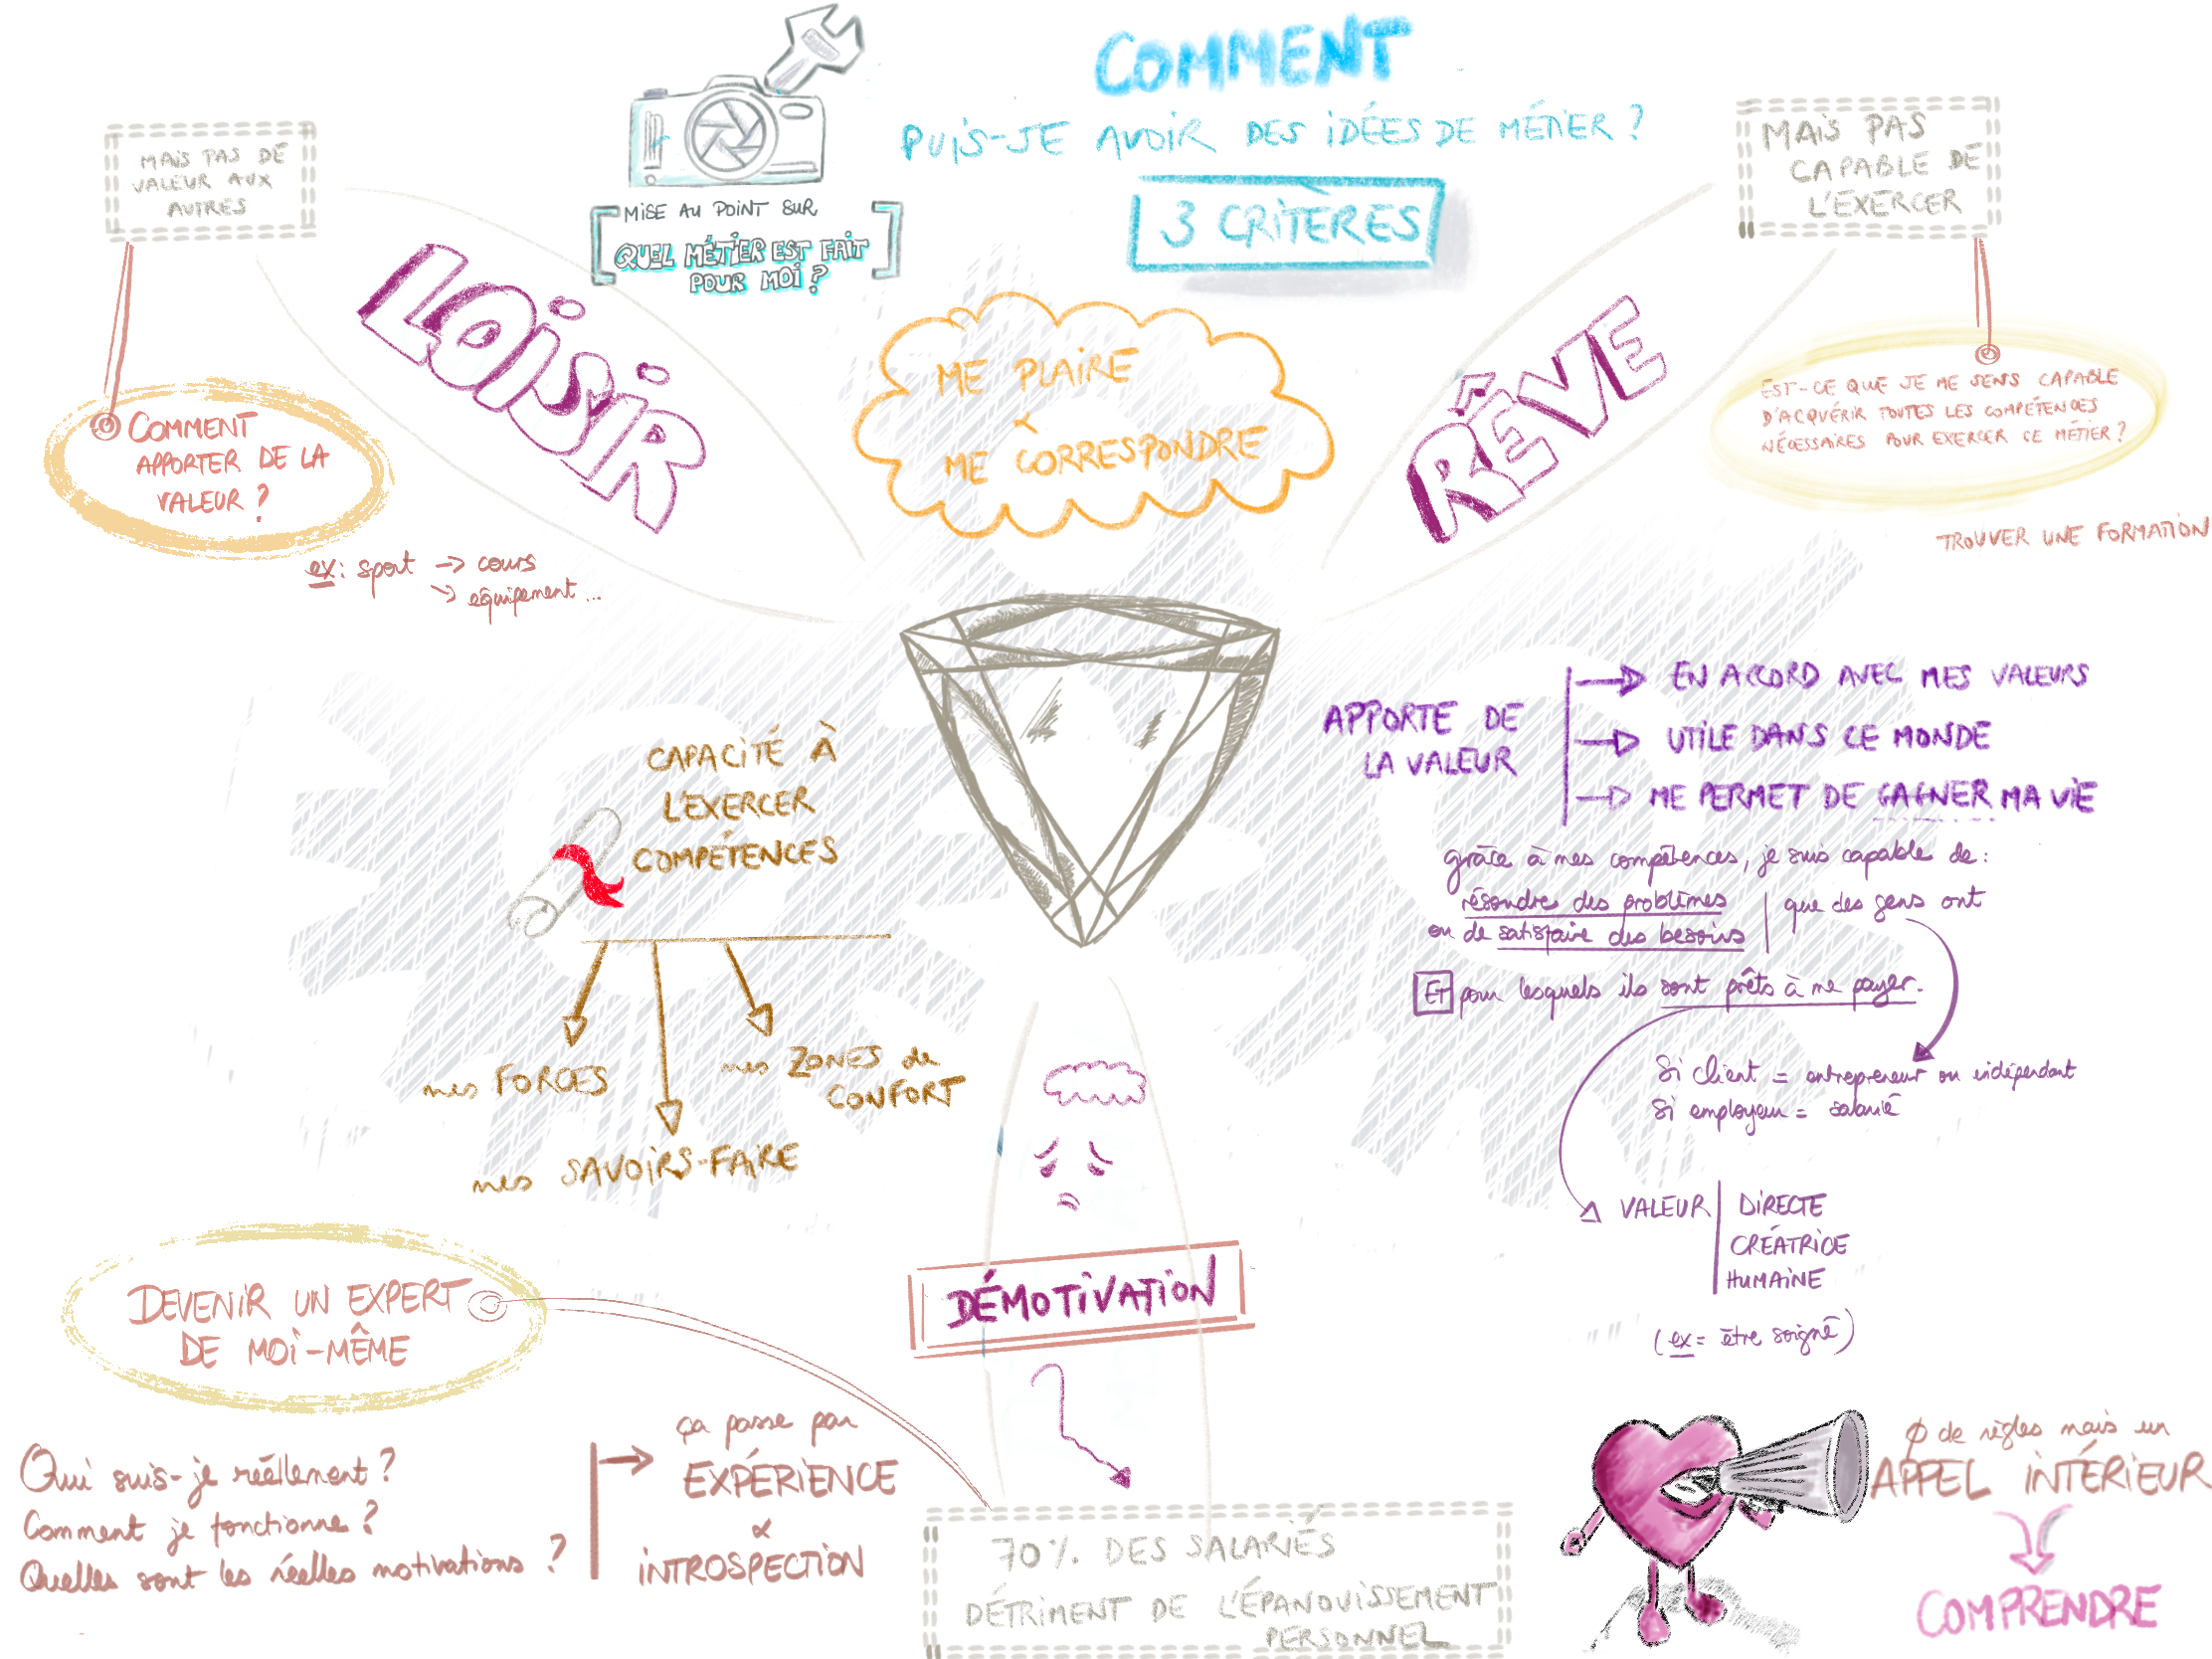 COMMENT
PUIS-JE AVOIR DES IDÉES DE MÉTIER ?
3 CRITÈRES
MISE AU POINT SUR
QUEL MÉTIER EST FAIT
POUR MOI ?
MAIS PAS DE
VALEUR AUX
AUTRES
LOISIR
COMMENT
APPORTER DE LA
VALEUR ?
ex : sport -> cours
-> équipement ...
ME PLAIRE
&
ME CORRESPONDRE
RÊVE
MAIS PAS
CAPABLE DE
L'EXERCER
EST-CE QUE JE ME SENS CAPABLE
D'ACQUÉRIR TOUTES LES COMPÉTENCES
NÉCESSAIRES POUR EXERCER CE MÉTIER ?
TROUVER UNE FORMATION
CAPACITÉ À
L'EXERCER
COMPÉTENCES
mes FORCES
mes SAVOIRS-FAIRE
mes ZONES de
CONFORT
APPORTE DE
LA VALEUR
EN ACCORD AVEC MES VALEURS
UTILE DANS CE MONDE
ME PERMET DE GAGNER MA VIE
grâce à mes compétences, je suis capable de :
résoudre des problèmes
ou de satisfaire des besoins
que des gens ont
ET pour lesquels ils sont prêts à me payer.
Si client = entrepreneur ou indépendant
Si employeur = salarié
VALEUR
DIRECTE
CRÉATRICE
HUMAINE
(ex = être soigné)
DÉMOTIVATION
70% DES SALARIÉS
DÉTRIMENT DE L'ÉPANOUISSEMENT
PERSONNEL
DEVENIR UN EXPERT
DE MOI-MÊME
Qui suis-je réellement ?
Comment je fonctionne ?
Quelles sont les réelles motivations ?
ça passe par
EXPÉRIENCE
&
INTROSPECTION
Ø de règles mais un
APPEL INTÉRIEUR
COMPRENDRE